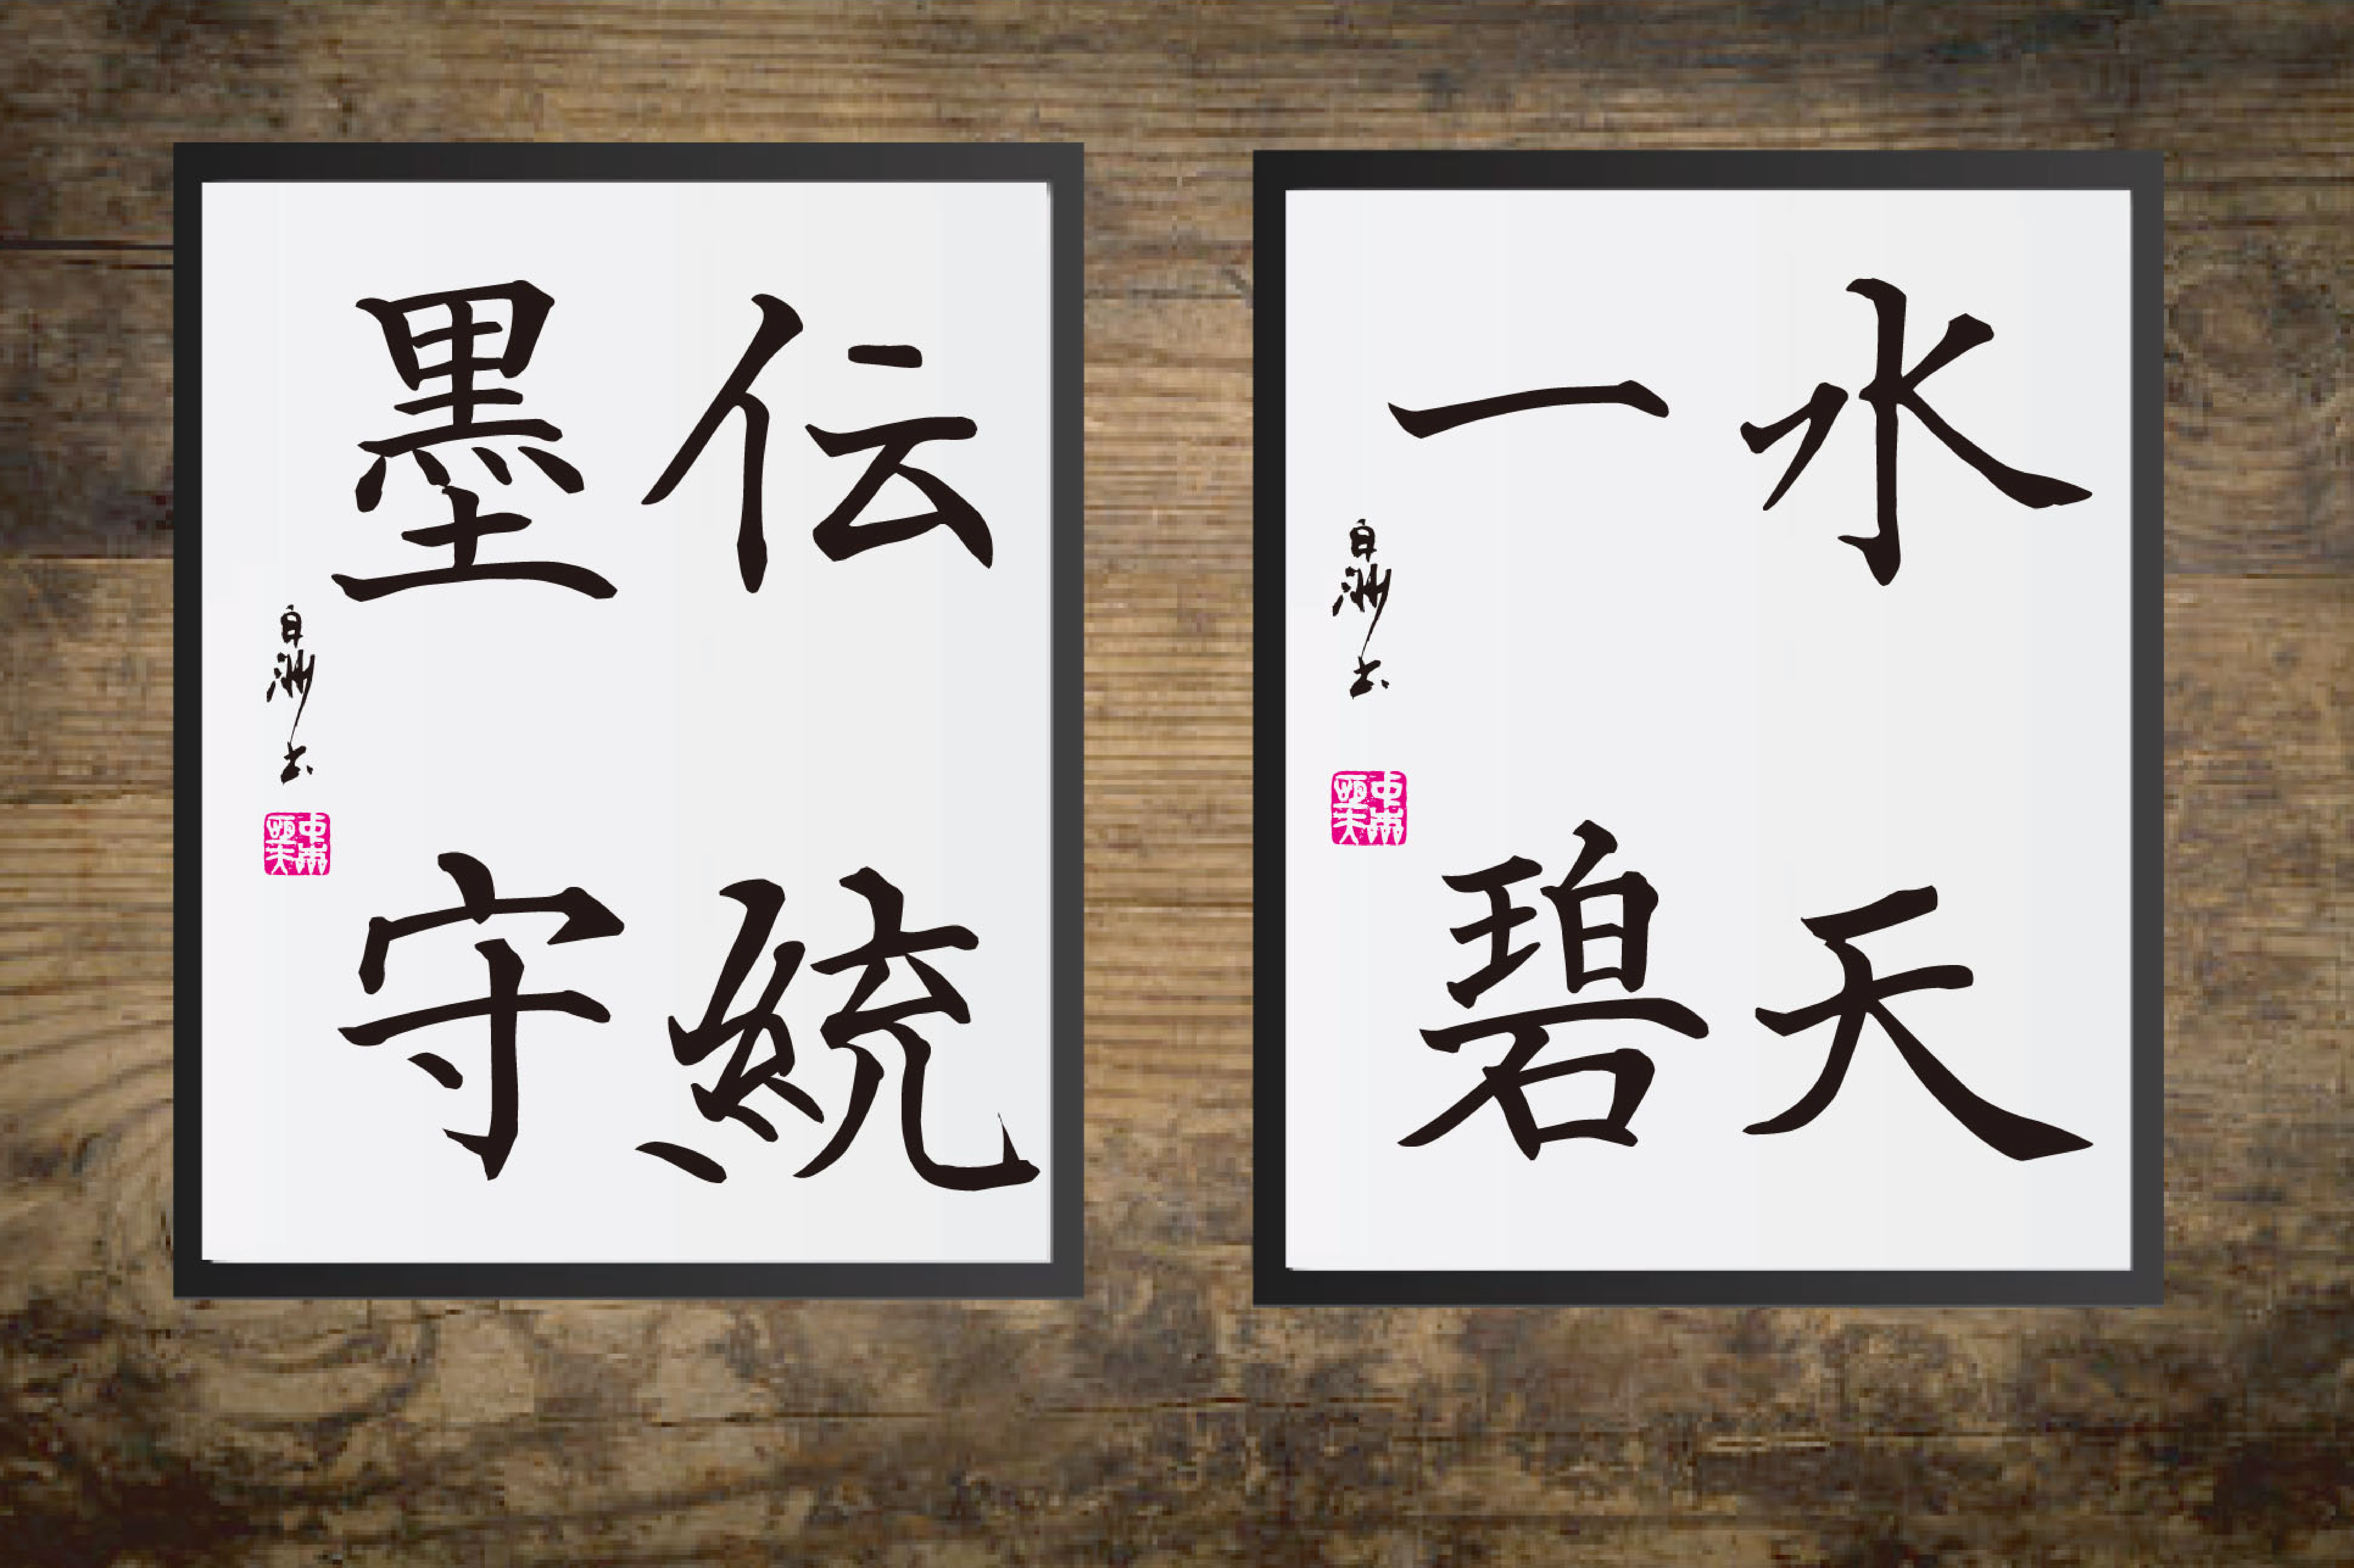 伝統
墨守
白洲書
水天
一碧
白洲書